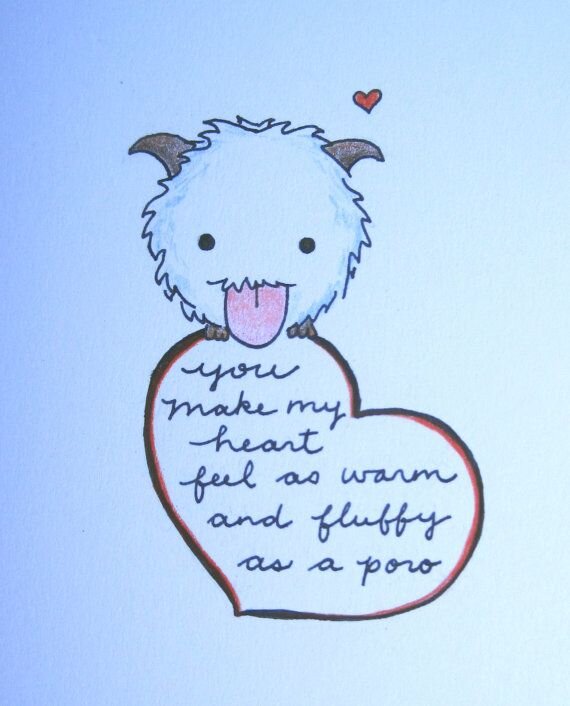 you
make my
heart
feel as warm
and fluffy
as a poro